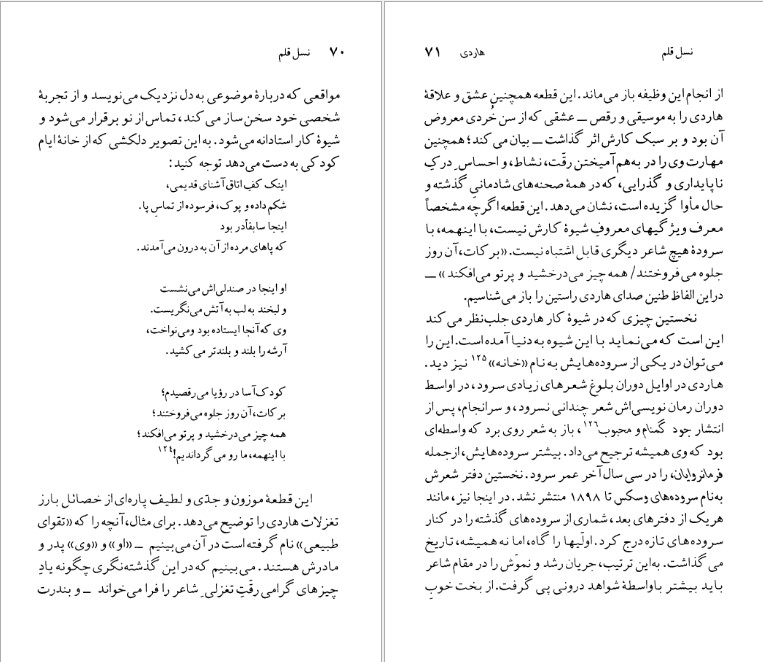 ۷۰ نسل قلم
مواقعی که دربارهٔ موضوعی به دل نزدیک می‌نویسد و از تجربهٔ
شخصی خود سخن ساز می‌کند، تماس از نو برقرار می‌شود و
شیوهٔ کار استادانه می‌شود. به این تصویر دلکشی که از خانهٔ ایام
کودکی به دست می‌دهد توجه کنید:
اینک کف اتاق آشنای قدیمی،
شکم داده و پوک، فرسوده از تماسِ پا.
اینجا سابقاً در بود
که پاهای مرده از آن به درون می‌آمدند.
او اینجا در صندلی‌اش می‌نشست
و لبخند به لب به آتش می‌نگریست.
وی که آنجا ایستاده بود و می‌نواخت،
آرشه را بلند و بلندتر می‌کشید.
کودک‌آسا در رؤیا می‌رقصیدم؛
برکات، آن روز جلوه می‌فروختند؛
همه چیز می‌درخشید و پرتو می‌افکند؛
با اینهمه، ما رو می‌گرداندیم!۱۲۴
این قطعهٔ موزون و جدّی و لطیف پاره‌ای از خصائل بارز
تغزلات هاردی را توضیح می‌دهد. برای مثال، آنچه را که «تقوای
طبیعی» نام گرفته است در آن می‌بینیم ــ «او» و «وی» پدر و
مادرش هستند. می‌بینیم که در این گذشته‌نگری چگونه یادِ
چیزهای گرامی رقّتِ تغزلیِ شاعر را فرا می‌خواند ــ و بندرت
نسل قلم هاردی ۷۱
از انجام این وظیفه باز می‌ماند. این قطعه همچنین عشق و علاقهٔ
هاردی را به موسیقی و رقص ــ عشقی که از سن خُردی معروض
آن بود و بر سبک کارش اثر گذاشت ــ بیان می‌کند؛ همچنین
مهارت وی را در به‌هم آمیختن رقّت، نشاط، و احساسِ درکِ
ناپایداری و گذرایی، که در همهٔ صحنه‌های شادمانیِ گذشته و
حال مأوا گزیده است، نشان می‌دهد. این قطعه اگرچه مشخصاً
معرف ویژگیهای معروفِ شیوهٔ کارش نیست، با اینهمه، با
سرودهٔ هیچ شاعر دیگری قابل اشتباه نیست. «برکات، آن روز
جلوه می‌فروختند/ همه چیز می‌درخشید و پرتو می‌افکند» ــ
در این الفاظ طنین صدای هاردی راستین را باز می‌شناسیم.
نخستین چیزی که در شیوهٔ کار هاردی جلب‌نظر می‌کند
این است که می‌نماید با این شیوه به دنیا آمده است. این را
می‌توان در یکی از سروده‌هایش به نام «خانه»۱۲۵ نیز دید.
هاردی در اوایل دوران بلوغ شعرهای زیادی سرود، در اواسط
دوران رمان نویسی‌اش شعر چندانی نسرود، و سرانجام، پس از
انتشار جود گمنام و محبوب۱۲۶، باز به شعر روی برد که واسطه‌ای
بود که وی همیشه ترجیح می‌داد. بیشتر سروده‌هایش، از جمله
فرمانروایان، را در سی سال آخر عمر سرود. نخستین دفتر شعرش
به‌نام سروده‌های وسکس تا ۱۸۹۸ منتشر نشد. در اینجا نیز، مانند
هریک از دفترهای بعد، شماری از سروده‌های گذشته را در کنار
سروده‌های تازه درج کرد. اولّیها را گاه، اما نه همیشه، تاریخ
می‌گذاشت. به‌این ترتیب، جریان رشد و نموّش را در مقام شاعر
باید بیشتر با واسطهٔ شواهد درونی پی گرفت. از بخت خوبِ